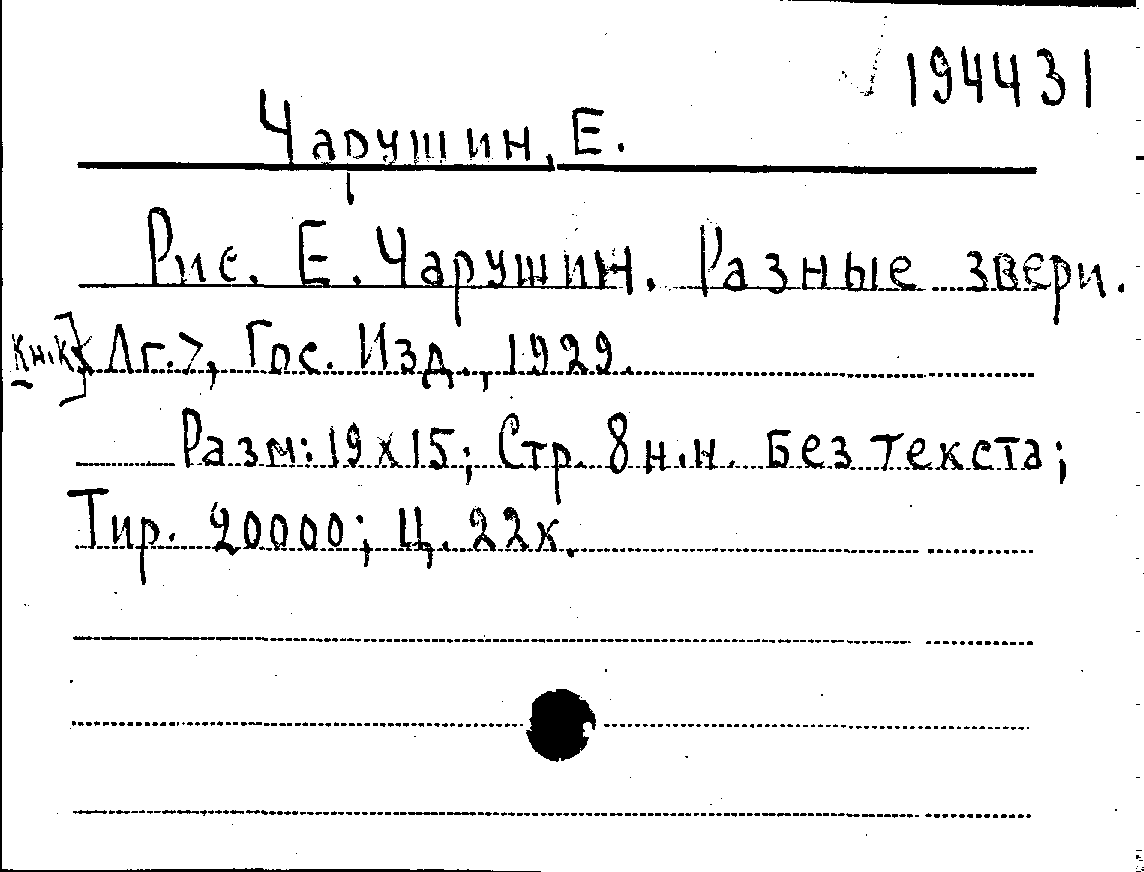 194431
Чарушин, Е.
Рис. Е. Чарушин. Разные звери.
кн.к] <Лг.>, Гос. Изд., 1929.
Разм: 19х15; Стр. 8 н.н. Без текста;
Тир. 20000; Ц. 22к.